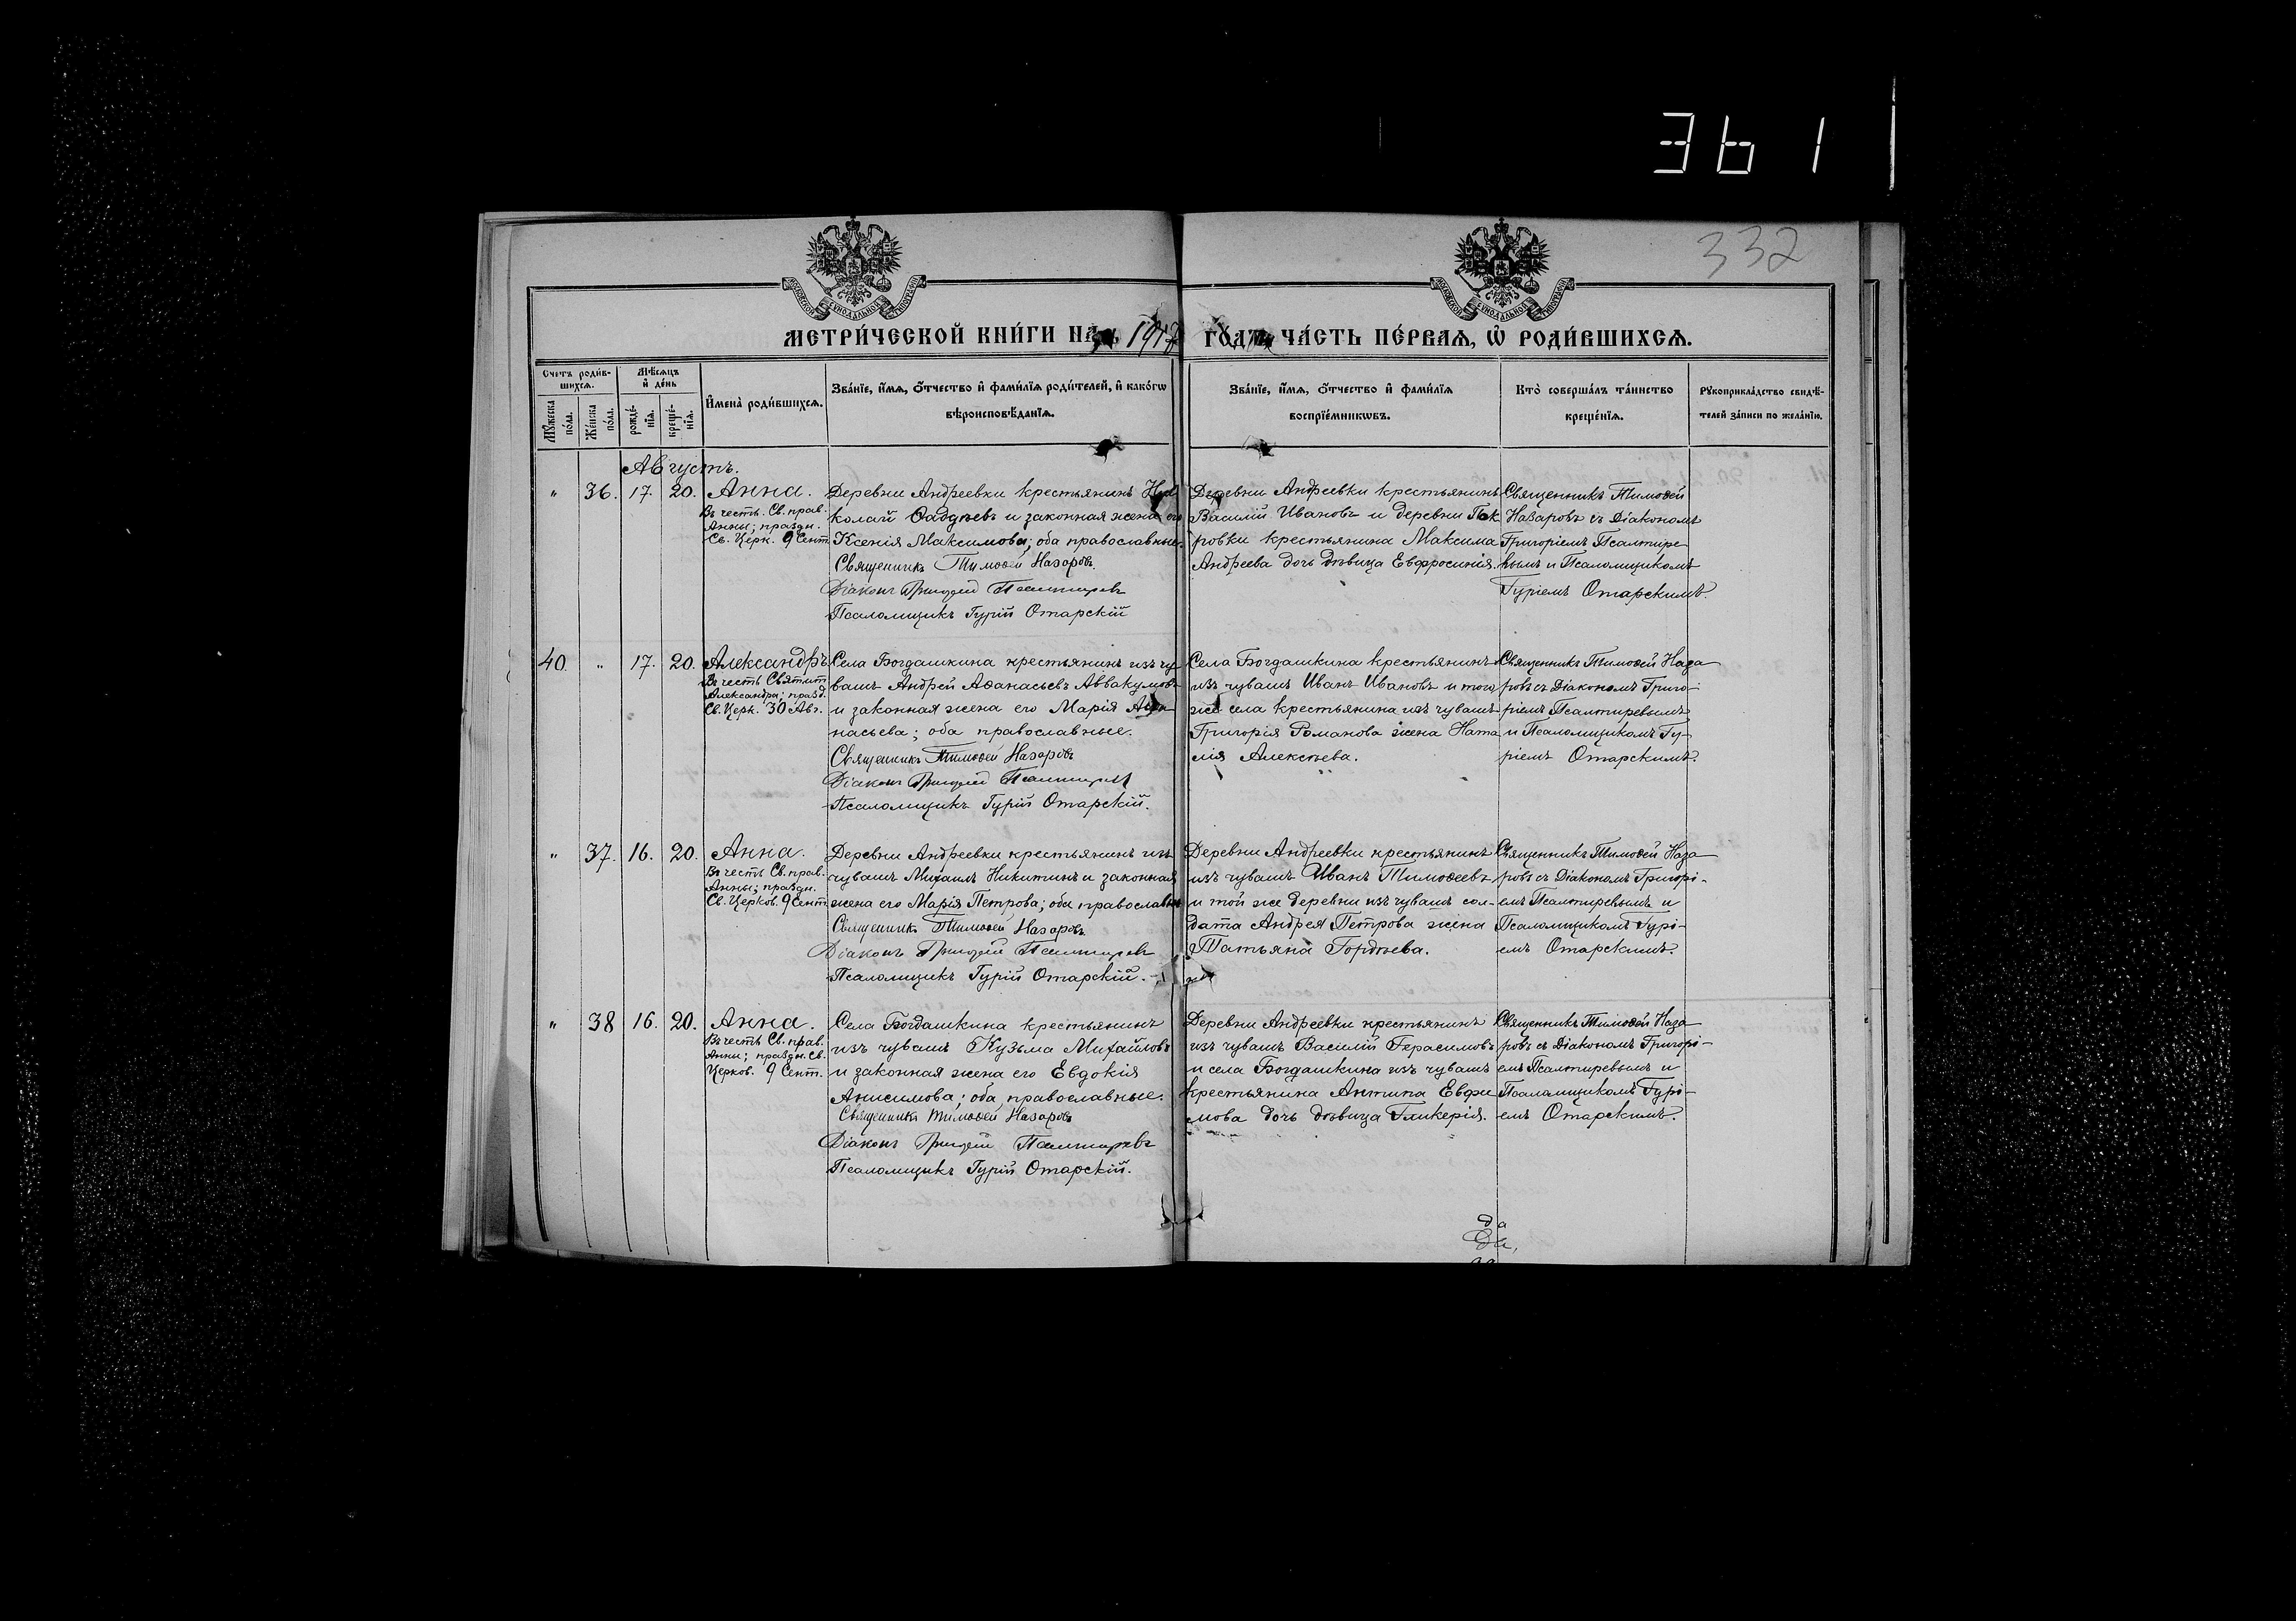 3611
332
МЕТРИ́ЧЕСКОЙ КНИ́ГИ НА 1917 ГО́ДЪ ЧА́СТЬ ПЕ́РВАѦ, Ѽ РОДИ́ВШИХСѦ.
Счетъ роди́вшихсѧ.
Мꙋ́жеска по́ла.
Же́нска по́ла.
Мѣ́сѧцъ и҆ де́нь
рожде́-нїѧ.
креще́-нїѧ.
И҆мена̀ роди́вшихсѧ.
Зва́нїе, и҆́мѧ, ѻ҆́тчество и҆ фами́лїѧ роди́телей, и҆ како́гѡ
вѣроисповѣ́данїѧ.
Зва́нїе, и҆́мѧ, ѻ҆́тчество и҆ фами́лїѧ
воспрїе́мникѡвъ.
Кто̀ соверша́лъ та́инство
креще́нїѧ.
Рꙋкоприкла́дство свидѣ́-
телей за́писи по жела́нїю.
Августъ.
" 36. 17. 20. Анна.
Въ честь Св. прав.
Анны; праздн.
Св. Церк. 9 Сент.
Деревни Андреевки крестьянинъ Ни
колай Ѳаддѣевъ и законная жена его
Ксенія Максимова; оба православные.
Священникъ Тимоѳей Назаровъ.
Діаконъ Григорій Псалтиревъ
Псаломщикъ Гурій Отарскій
Деревни Андреевки крестьянинъ
Василій Ивановъ и деревни Пок
ровки крестьянина Максима
Андреева дочь дѣвица Евфросинія.
Священникъ Тимоѳей
Назаровъ съ Діакономъ
Григоріемъ Псалтире
вымъ и Псаломщикомъ
Гуріемъ Отарскимъ.
40. " 17. 20. Александръ
Въ честь Святит.
Александра; празд.
Св. Церк. 30 Авг.
Села Богдашкина крестьянинъ изъ чу
вашъ Андрей Аѳанасьевъ Аввакумовъ
и законная жена его Марія Аѳа
насьева; оба православные.
Священникъ Тимоѳей Назаровъ
Діаконъ Григорій Псалтиревъ
Псаломщикъ Гурій Отарскій.
Села Богдашкина крестьянинъ
изъ чувашъ Иванъ Ивановъ и того
же села крестьянина изъ чувашъ
Григорія Романова жена Ната
лія Алексѣева.
Священникъ Тимоѳей Наза
ровъ съ Діакономъ Григо-
ріемъ Псалтиревымъ
и Псаломщикомъ Гу-
ріемъ Отарскимъ.
" 37. 16. 20. Анна.
Въ честь Св. прав.
Анны; праздн.
Св. Церков. 9 Сент.
Деревни Андреевки крестьянинъ изъ
чувашъ Михаилъ Никитинъ и законная
жена его Марія Петрова; оба православные
Священникъ Тимоѳей Назаровъ
Діаконъ Григорій Псалтиревъ
Псаломщикъ Гурій Отарскій.
Деревни Андреевки крестьянинъ
изъ чувашъ Иванъ Тимоѳеевъ
и той же деревни изъ чувашъ сол-
дата Андрея Петрова жена
Татьяна Гордѣева.
Священникъ Тимоѳей Наза
ровъ съ Діакономъ Григорі-
емъ Псалтиревымъ и
Псаломщикомъ Гурі-
емъ Отарскимъ.
" 38 16. 20. Анна.
Въ честь Св. прав.
Анны; праздн. Св.
Церков. 9 Сент.
Села Богдашкина крестьянинъ
изъ чувашъ Кузьма Михайловъ
и законная жена его Евдокія
Анисимова; оба православные.
Священникъ Тимоѳей Назаровъ
Діаконъ Григорій Псалтиревъ
Псаломщикъ Гурій Отарскій.
Деревни Андреевки крестьянинъ
изъ чувашъ Василій Герасимовъ
и села Богдашкина изъ чувашъ
крестьянина Антипа Евфи
мова дочь дѣвица Гликерія.
Священникъ Тимоѳей Наза
ровъ съ Діакономъ Григорі-
емъ Псалтиревымъ и
Псаломщикомъ Гурі-
емъ Отарскимъ.